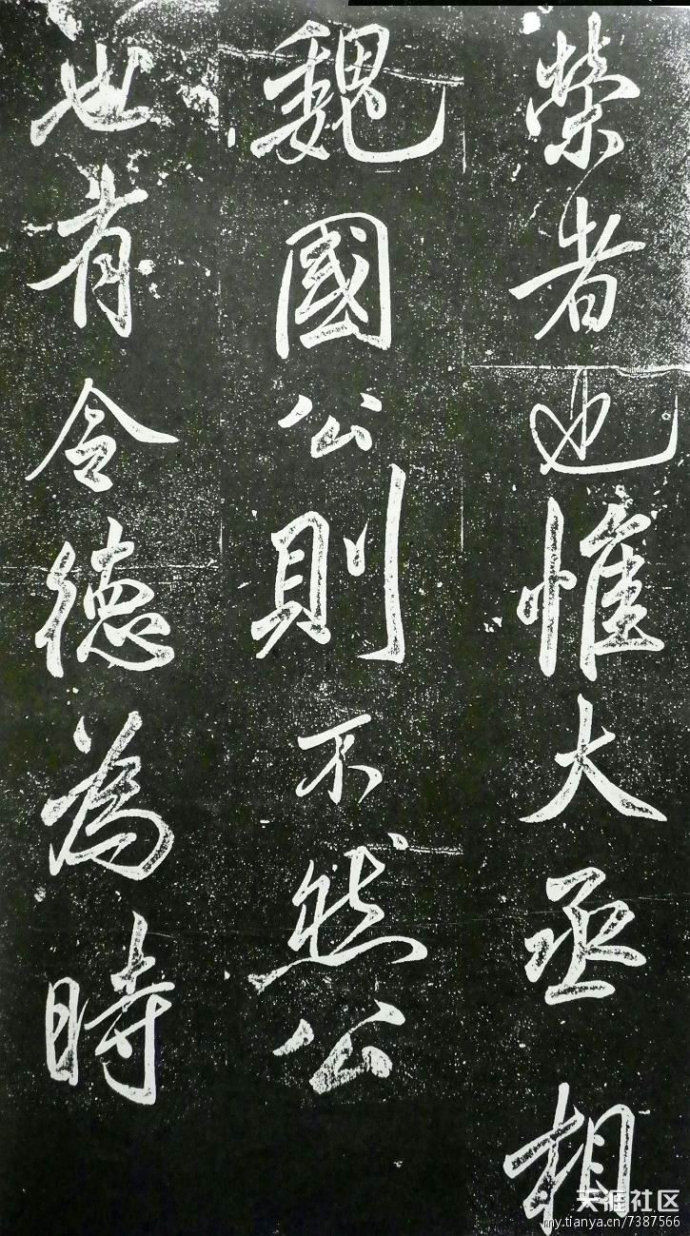 榮者也惟大丞相
魏國公則不然公
也有令德為時
天涯社区
my.tianya.cn/7387566